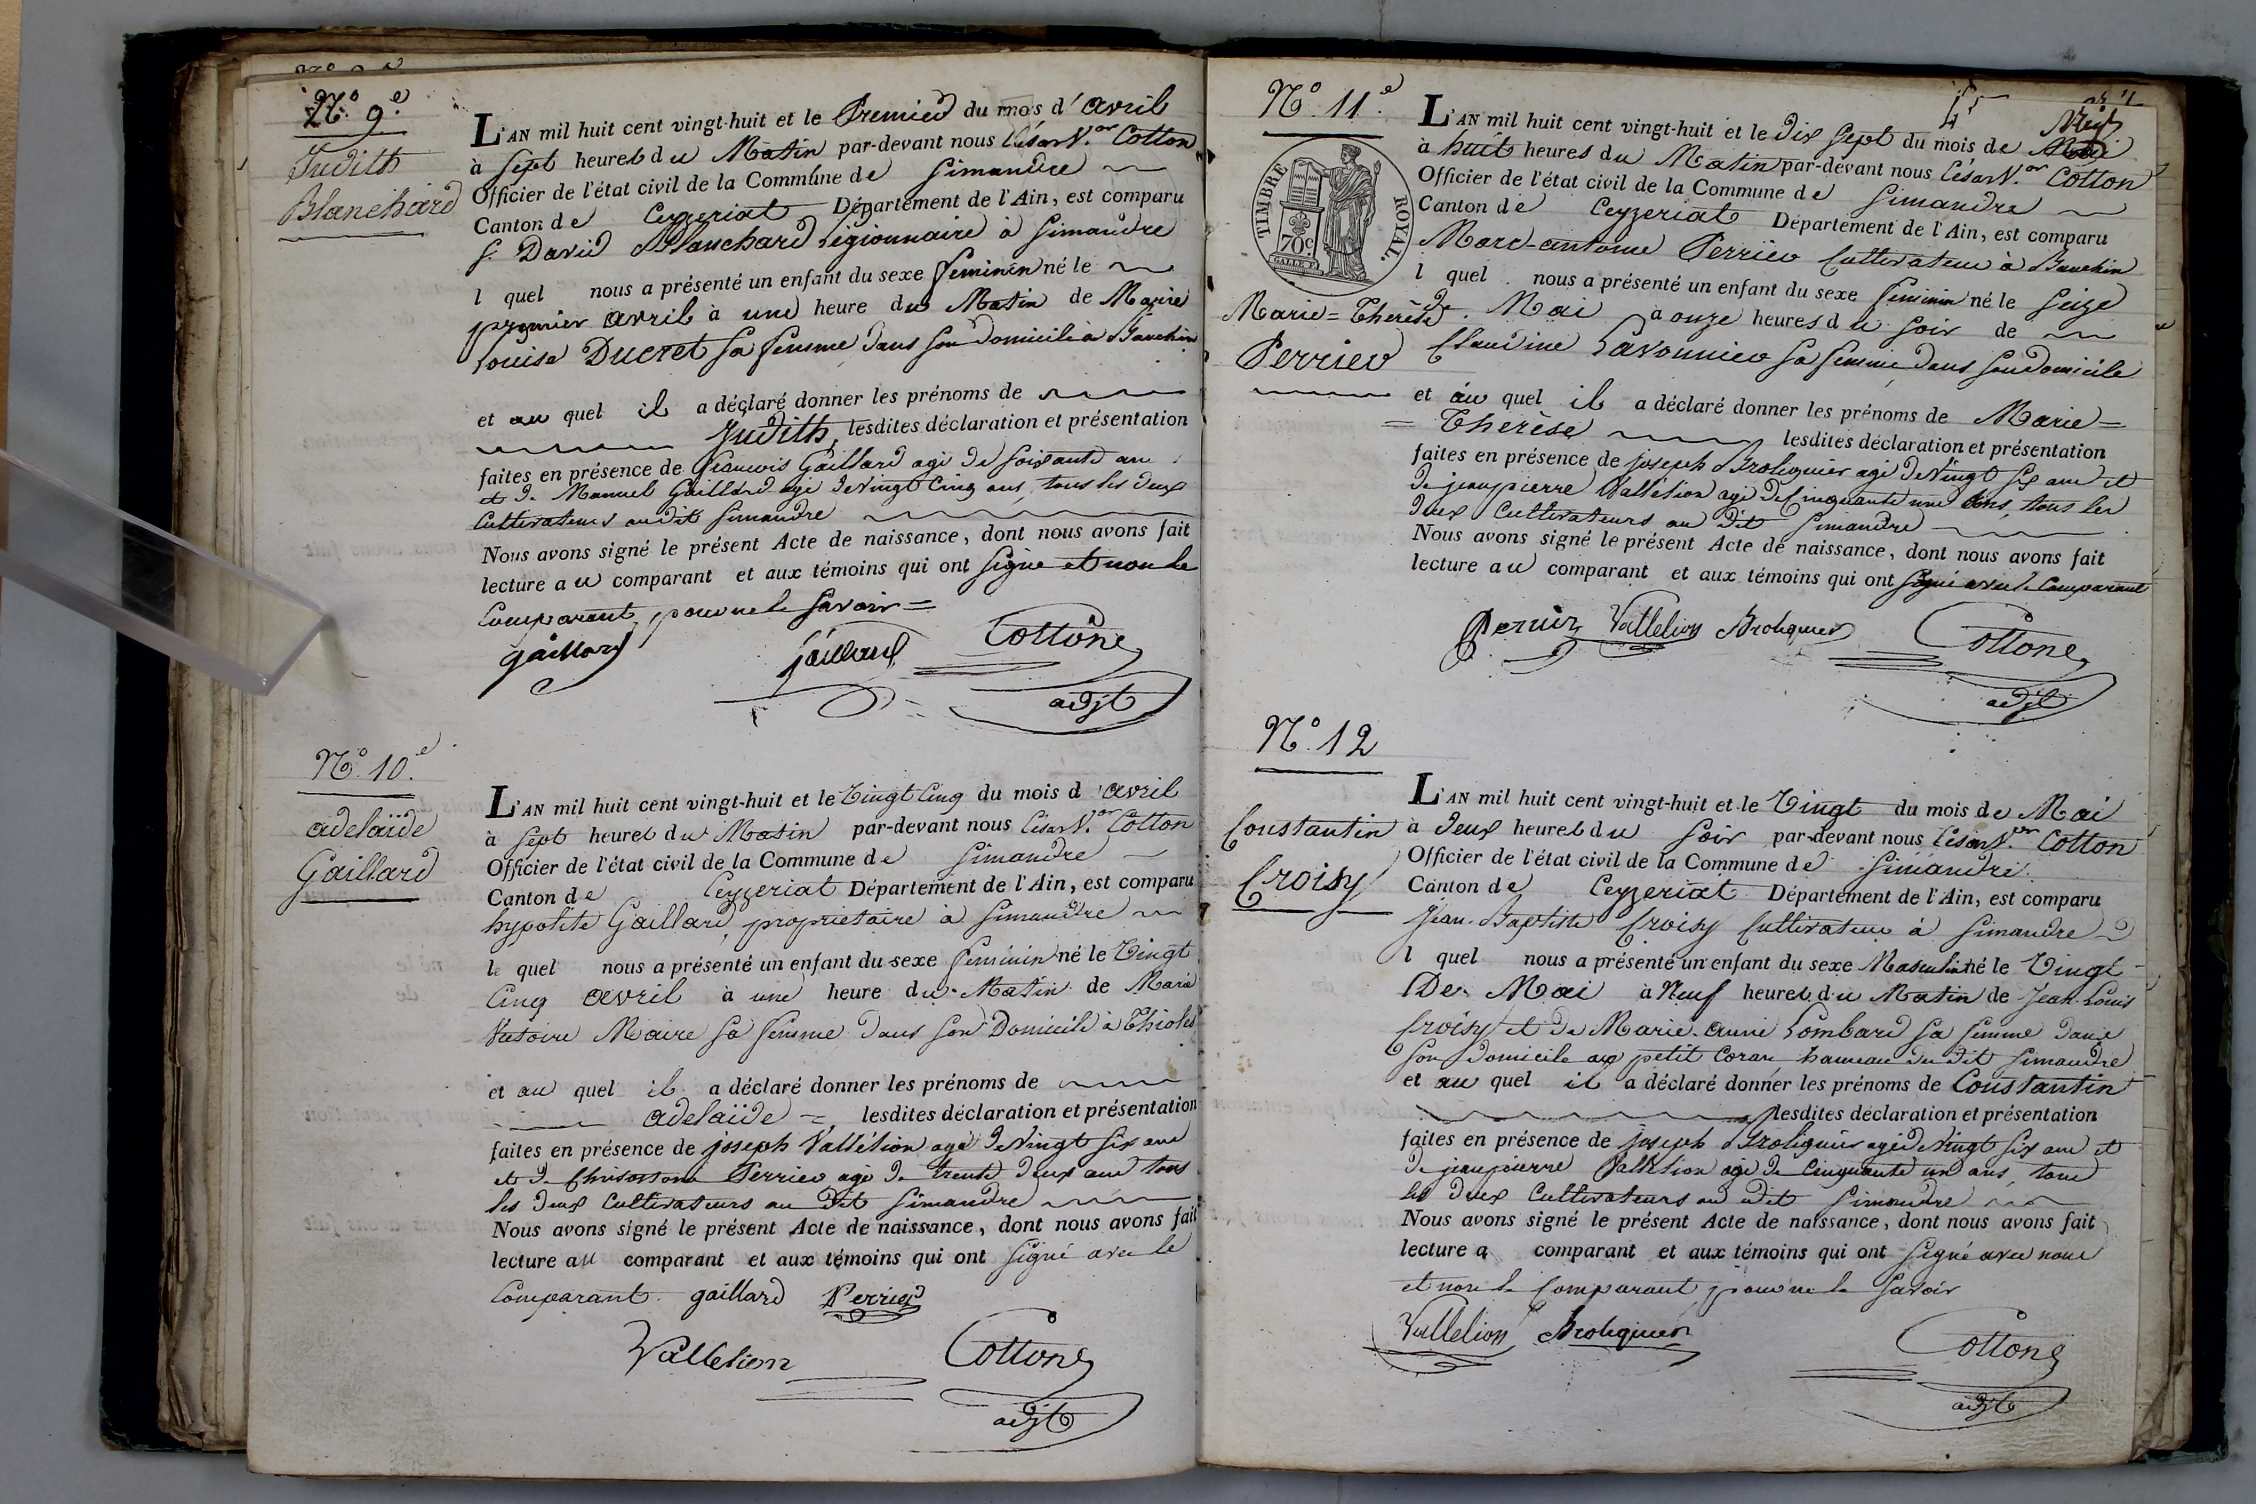 N.º 9.e
Judith
Blanchard
L'AN mil huit cent vingt-huit et le Premier du mois d'avril
à Sept heures du Matin par-devant nous César V.or Cotton
Officier de l'état civil de la Commune de Simandre
Canton de Ceyzeriat Département de l'Ain, est comparu
S. David Blanchard Légionnaire à Simandre
l quel nous a présenté un enfant du sexe feminin né le
premier avril à une heure du Matin de Marie
Louise Ducret sa femme dans son domicile à Banchin
et au quel il a déclaré donner les prénoms de
Judith, lesdites déclaration et présentation
faites en présence de françois Gaillard agé de soixante ans
et de Manuel Gaillard agé de Vingt Cinq ans, tous les deux
Cultivateurs audit Simandre
Nous avons signé le présent Acte de naissance, dont nous avons fait
lecture au comparant et aux témoins qui ont signé et non le
Comparant, pour ne le savoir =
gaillard gaillard Cottone
adjt
N.º 10.e
adelaïde
Gaillard
L'AN mil huit cent vingt-huit et le Vingt Cinq du mois d'avril
à Sept heures du Matin par-devant nous César V.or Cotton
Officier de l'état civil de la Commune de Simandre
Canton de Ceyzeriat Département de l'Ain, est comparu
hypolite Gaillard, proprietaire à Simandre
le quel nous a présenté un enfant du sexe feminin né le Vingt
Cinq avril à une heure du Matin de Marie
Victoire Maire sa femme dans son Domicile à Thioles
et au quel il a déclaré donner les prénoms de
adelaïde = lesdites déclaration et présentation
faites en présence de joseph Vallélion agé de Vingt six ans
et de Chrisostome Perrier agé de trente deux ans tous
les deux Cultivateurs au dit Simandre
Nous avons signé le présent Acte de naissance, dont nous avons fait
lecture au comparant et aux témoins qui ont signé avec le
Comparant. gaillard Perrier
Vallelion Cottone
adjt
N.º 11.e
TIMBRE ROYAL.
70c
Marie=Therèse
Perrier
L'AN mil huit cent vingt-huit et le Dix sept du mois de Mai
à huit heures du Matin par-devant nous César V.or Cotton
Officier de l'état civil de la Commune de Simandre
Canton de Ceyzeriat Département de l'Ain, est comparu
Marc-antoine Perrier Cultivateur à Banchin
l quel nous a présenté un enfant du sexe feminin né le Seize
de Mai à onze heures du soir de
Claudine Lavonnier sa femme, dans son domicile
et au quel il a déclaré donner les prénoms de Marie=
= Therèse lesdites déclaration et présentation
faites en présence de joseph Broliquier agé de Vingt Six ans et
de jeanpierre Vallélion agé de Cinquante une ans, tous les
deux Cultivateurs au dit Simandre
Nous avons signé le présent Acte de naissance, dont nous avons fait
lecture au comparant et aux témoins qui ont signé avec le Comparant
Perrier Vallelion Broliquier Cottone
adjt
N.º 12
Constantin
Croisy
L'AN mil huit cent vingt-huit et le Vingt du mois de Mai
à deux heures du soir par-devant nous César V.or Cotton
Officier de l'état civil de la Commune de Simandre
Canton de Ceyzeriat Département de l'Ain, est comparu
Jean-Baptiste Croisy Cultivateur à Simandre
l quel nous a présenté un enfant du sexe Masculin né le Vingt
De Mai à Neuf heures du Matin de Jean-Louis
Croisy et de Marie-anne Lombard sa femme dans
son domicile au petit Coran, hameau du dit Simandre
et au quel il a déclaré donner les prénoms de Constantin
lesdites déclaration et présentation
faites en présence de joseph Broliquier agé de Vingt six ans et
de jeanpierre Vallélion agé de Cinquante un ans, tous
les deux Cultivateurs au dit Simandre
Nous avons signé le présent Acte de naissance, dont nous avons fait
lecture a comparant et aux témoins qui ont signé avec nous
et non le Comparant, pour ne le savoir
Vallelion Broliquier Cottone
adjt